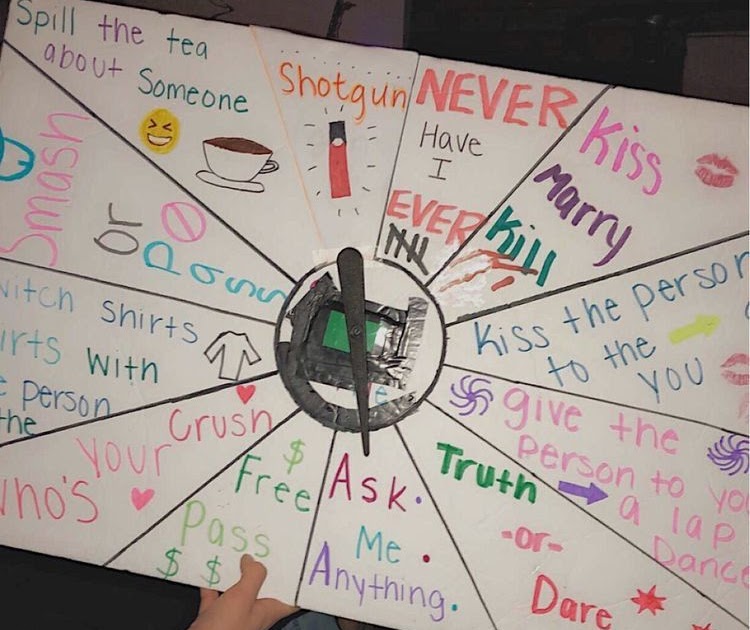 Spill the tea
about Someone
Shotgun
NEVER
Have
I
EVER
Kiss
Marry
Kill
Kiss the person
to the
you
give the
person to you
a lap
Dance
Truth
-or-
Dare
Ask.
Me.
Anything.
$
Free
Pass
$ $
Your Crush
shirts
with
person
the
Smash
or
Pass